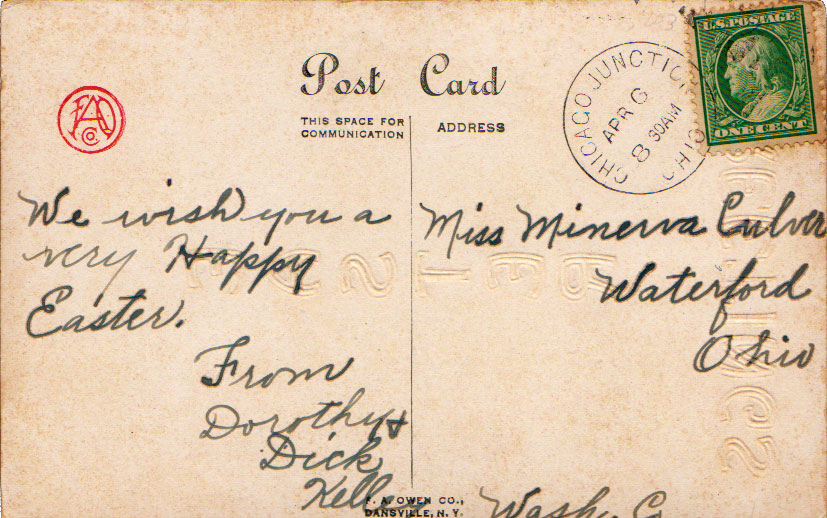 Post Card
THIS SPACE FOR
COMMUNICATION
ADDRESS
FAO
CO.
U.S. POSTAGE
ONE CENT
CHICAGO JUNCTION
APR 6
8 30 AM
OHIO
We wish you a
very Happy
Easter.
From
Dorothy &
Dick
Miss Minerva Culver
Waterford
Ohio
Wash. Co
F. A. OWEN CO.,
DANSVILLE, N. Y.